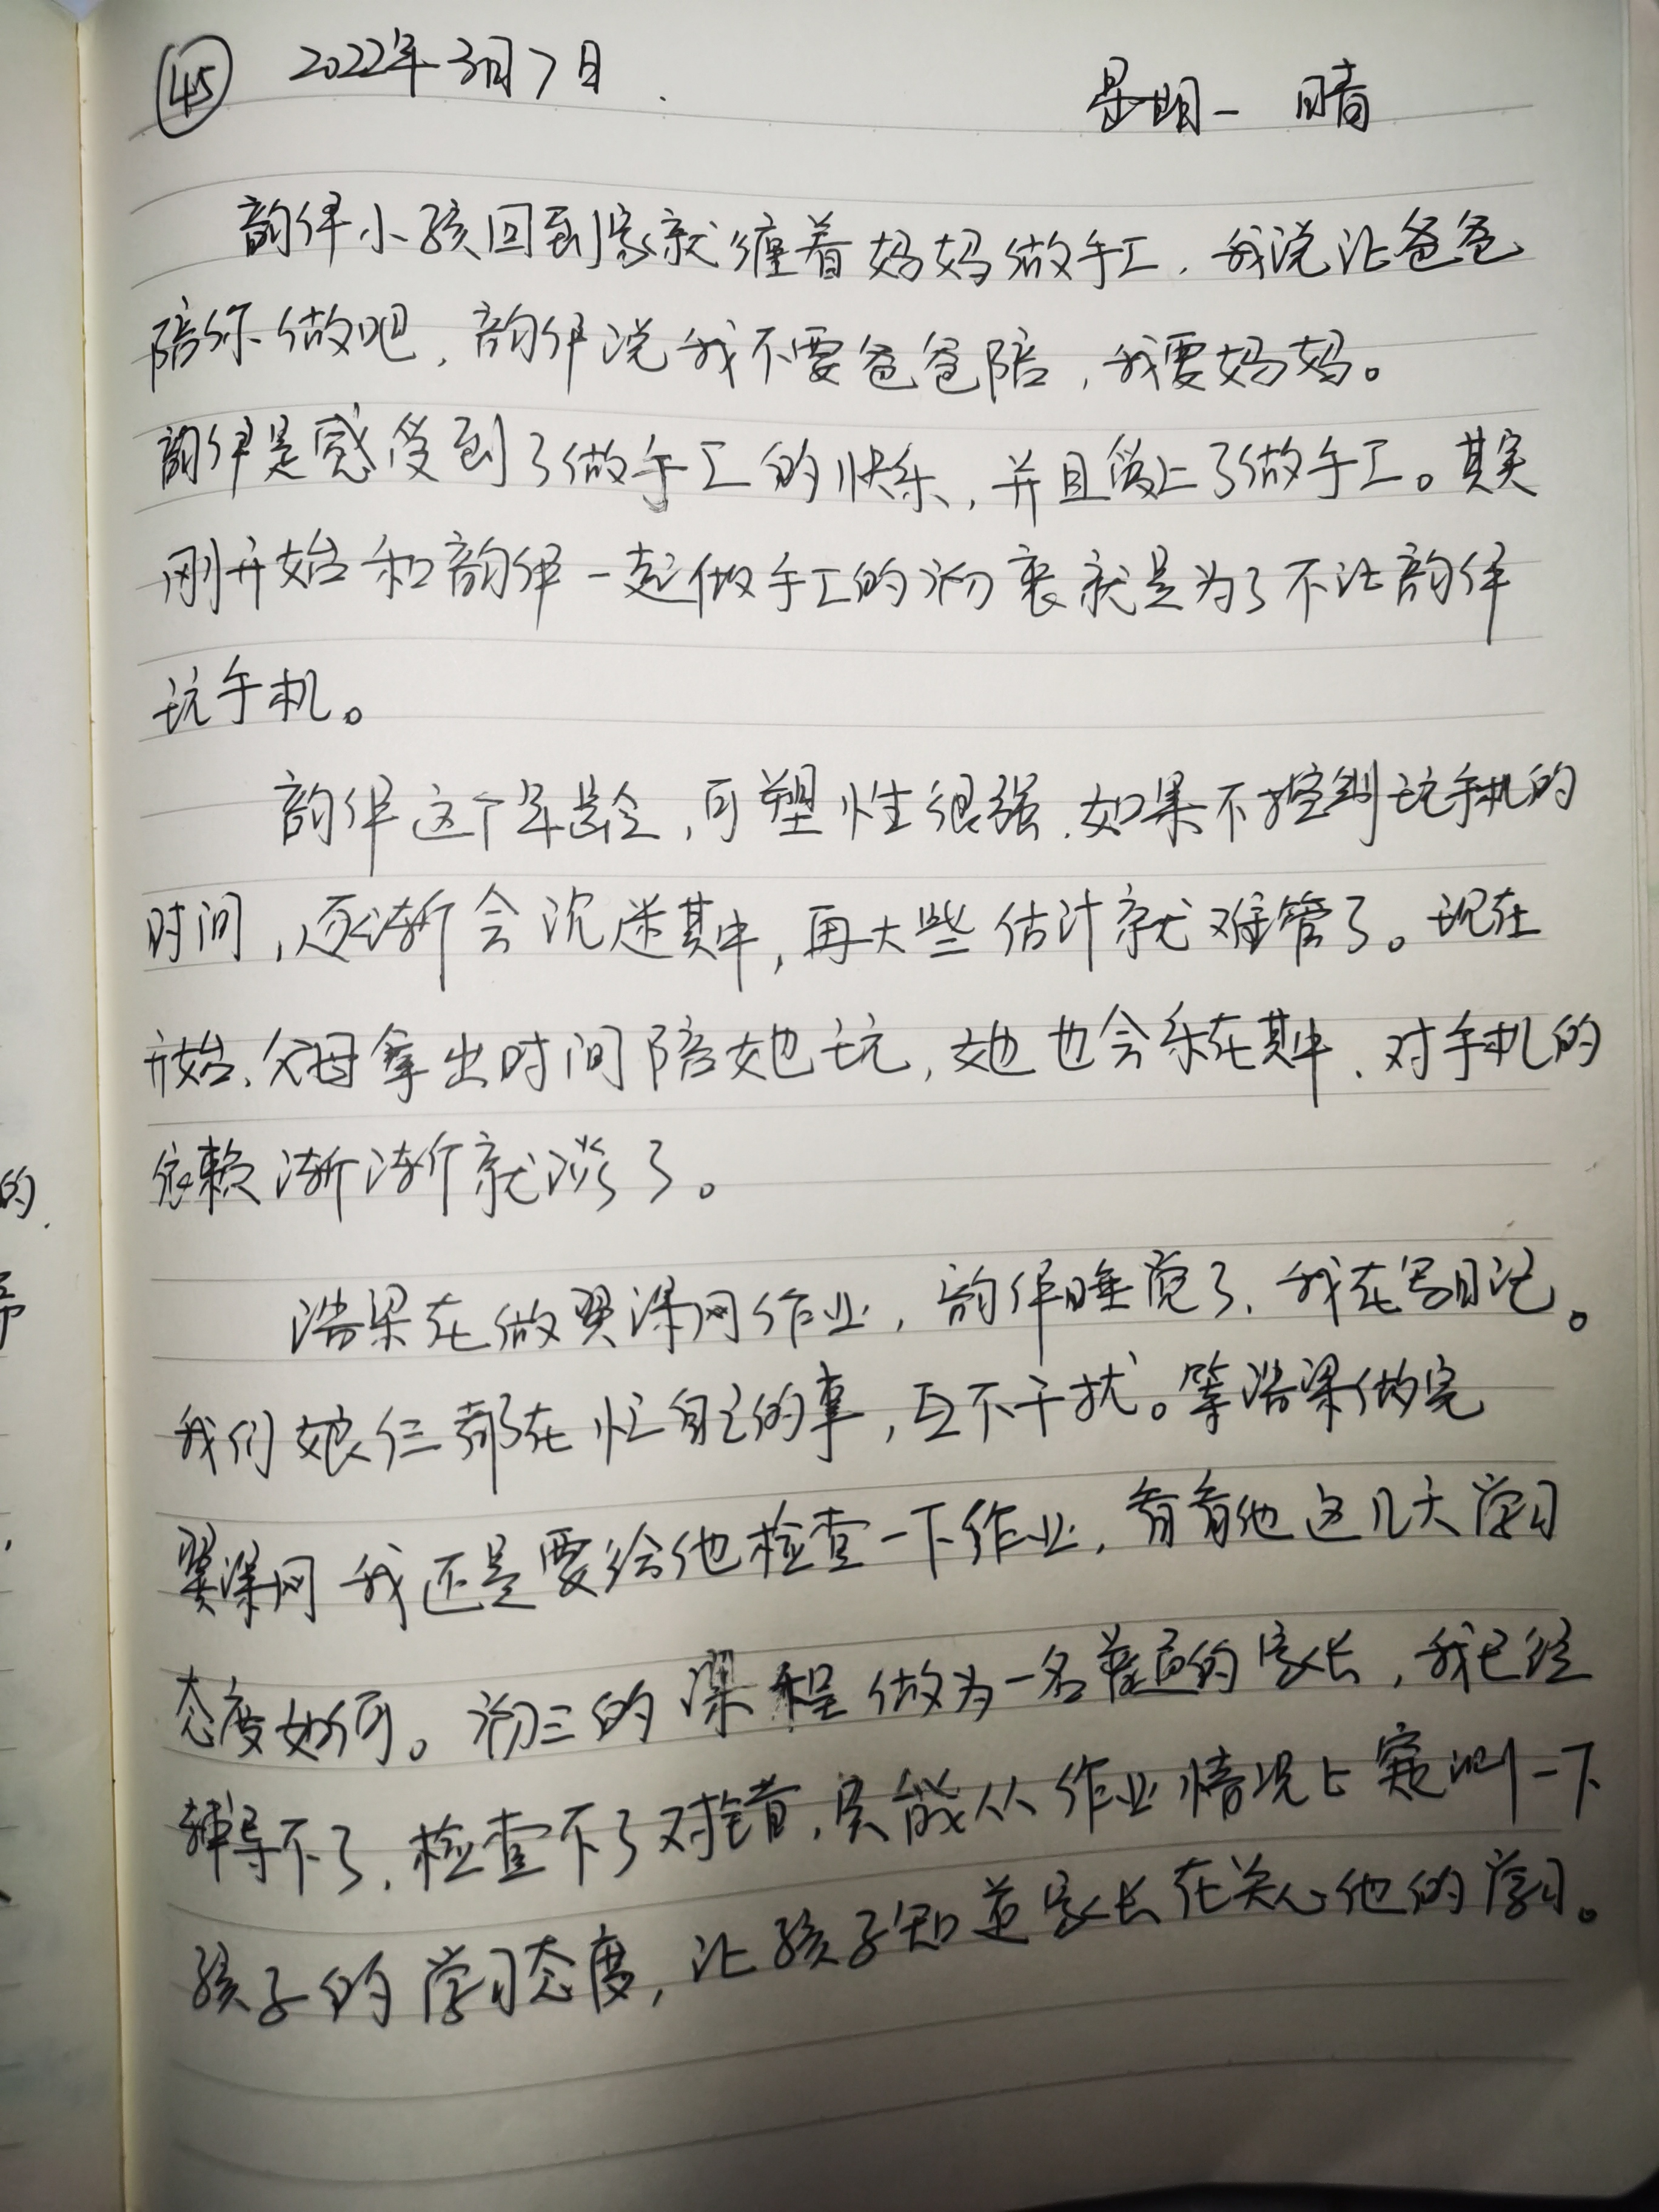 45 2022年3月7日. 星期一 晴
韵伊小孩回到家就缠着妈妈做手工，我说让爸爸
陪你做吧，韵伊说我不要爸爸陪，我要妈妈。
韵伊是感受到了做手工的快乐，并且爱上了做手工。其实
刚开始和韵伊一起做手工的初衷就是为了不让韵伊
玩手机。
韵伊这个年龄，可塑性很强，如果不控制玩手机的
时间，逐渐会沉迷其中，再大些估计就难管了。现在
开始，父母拿出时间陪她玩，她也会乐在其中，对手机的
依赖渐渐就淡了。
浩果在做翼课网作业，韵伊睡觉了，我在写日记。
我们娘仨都在忙自己的事，互不干扰。等浩果做完
翼课网我还是要给他检查一下作业，看看他这几天学习
态度如何。初三的课程做为一名普通的家长，我已经
辅导不了，检查不了对错，只能从作业情况上窥测一下
孩子的学习态度，让孩子知道家长在关心他的学习。
的.